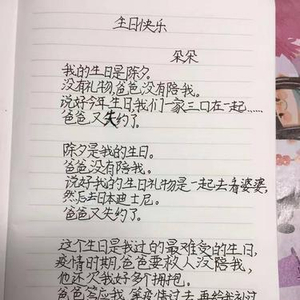 生日快乐
朵朵
我的生日是除夕。
没有礼物,爸爸没有陪我。
说好今年生日我们一家三口在一起……
爸爸又失约了。
除夕是我的生日。
爸爸没有陪我。
说好我的生日礼物是一起去看婆婆,
然后去日本迪士尼。
爸爸又失约了。
这个生日是我过的最难受的生日,
疫情时期,爸爸要救人没陪我,
他还欠我好多个拥抱。
爸爸答应我,等疫情过去,再给我补过